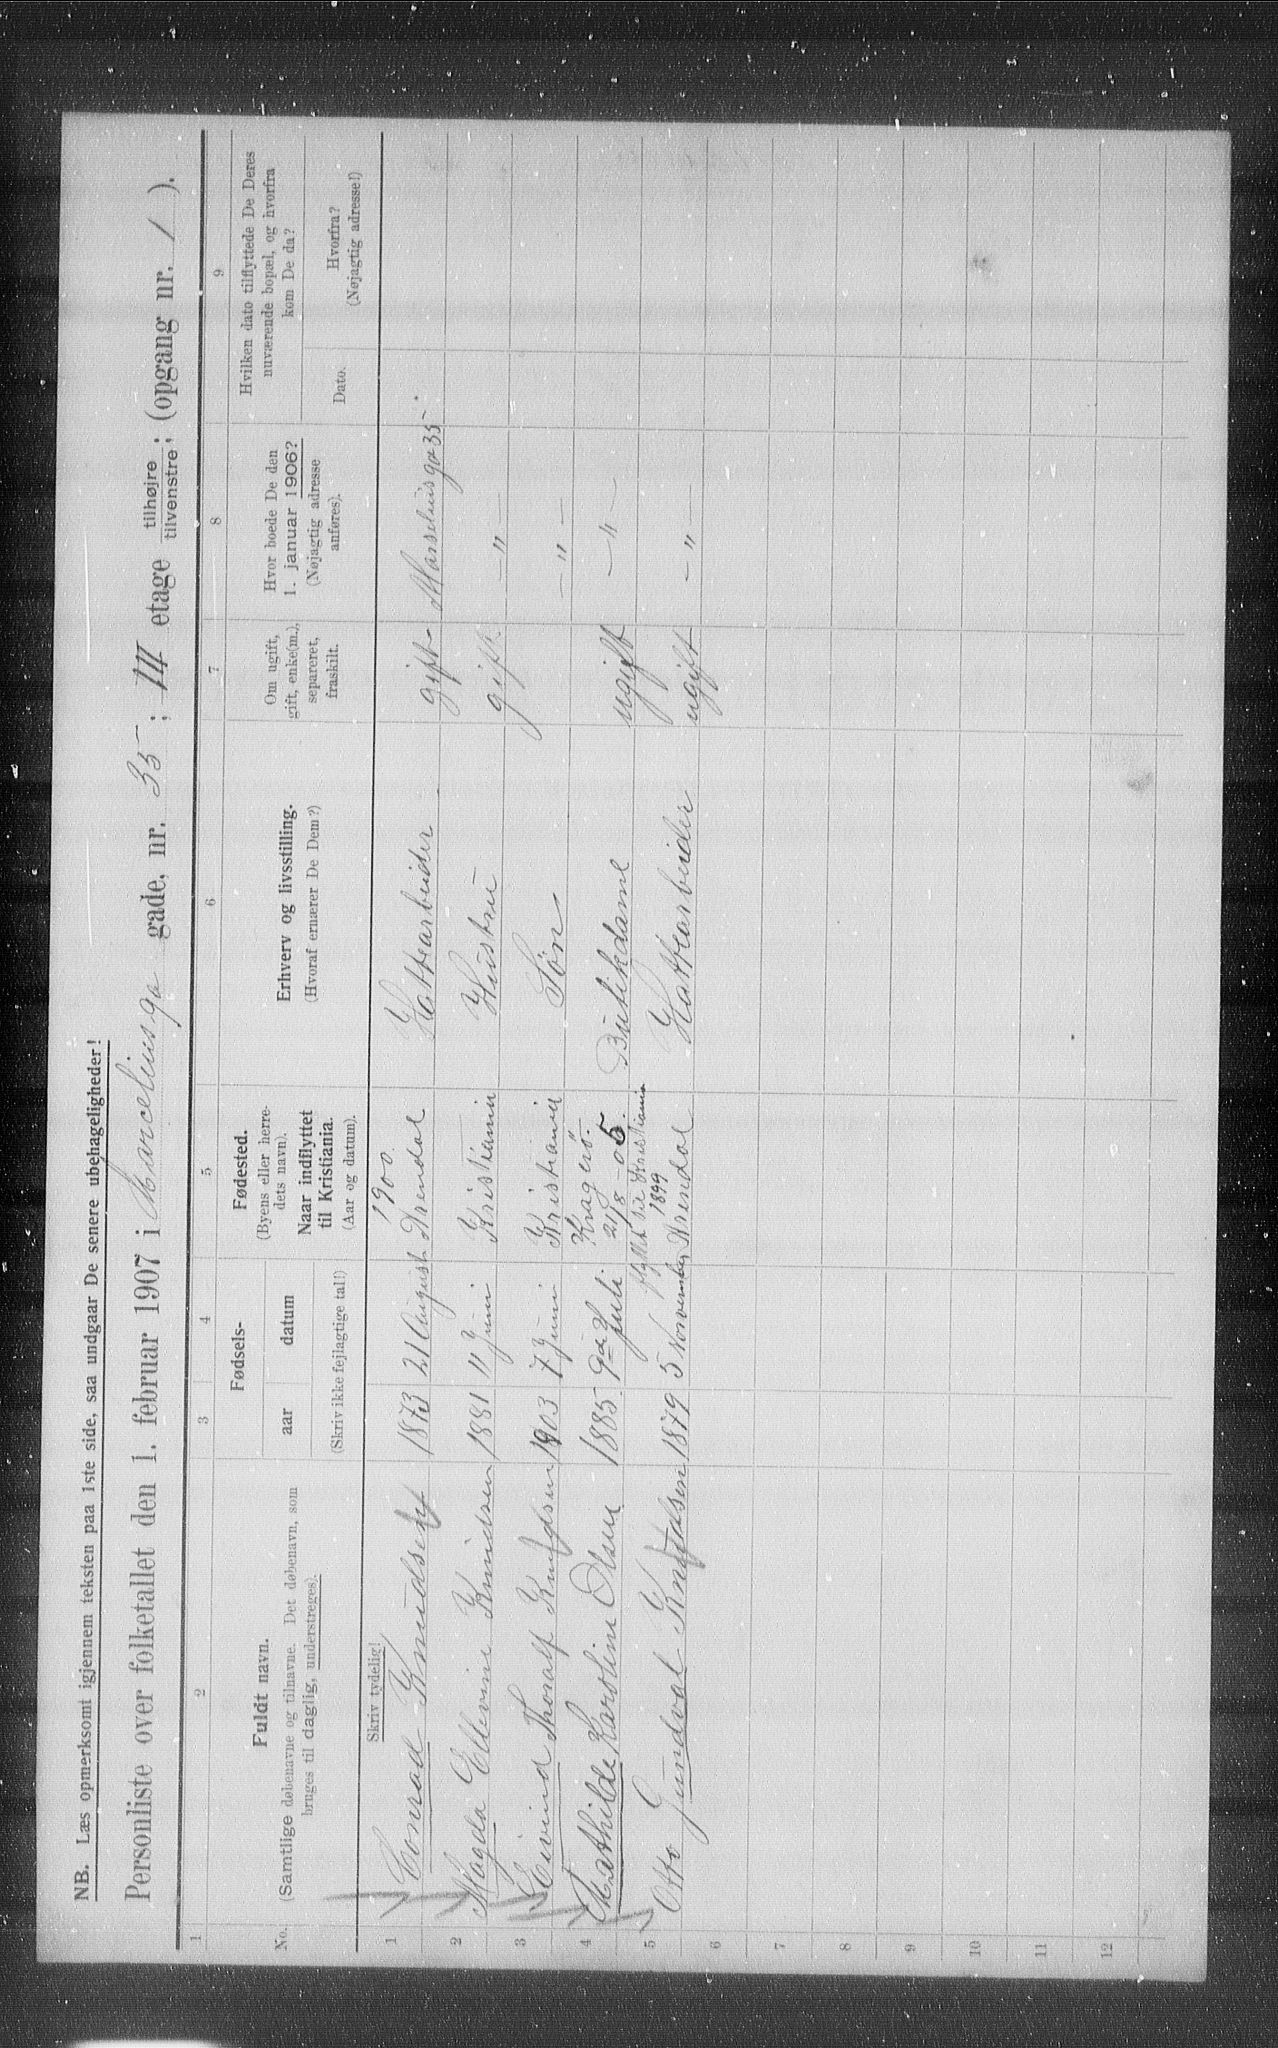 NB. Læs opmerksomt igjennem teksten paa 1ste side, saa undgaar De senere ubehageligheder!
Personliste over folketallet den 1. februar 1907 i Marcelius ga gade, nr. 35; III etage tilhøjre tilvenstre; (opgang nr. 1).
1 2 3 4 5 6 7 8 9
No.
Fuldt navn.
(Samtlige døbenavne og tilnavne. Det døbenavn, som
bruges til daglig, understreges).
Skriv tydelig!
Fødsels-
aar datum
(Skriv ikke fejlagtige tal!)
Fødested.
(Byens eller herre-
dets navn).
Naar indflyttet
til Kristiania.
(Aar og datum).
Erhverv og livsstilling.
(Hvoraf ernærer De Dem?)
Om ugift,
gift, enke(m.),
separeret,
fraskilt.
Hvor boede De den
1. januar 1906?
(Nøjagtig adresse
anføres).
Hvilken dato tilflyttede De Deres
nuværende bopæl, og hvorfra
kom De da?
Dato.
Hvorfra?
(Nøjagtig adresse!)
1900.
1 Conrad Knudsen 1873 21 August Arendal Hattearbeider gift Marselius ga 35.
2 Magda Ellevine Knudsen 1881 11 Juni Kristiania Hustru gift — " —
3 Eivind Thoralf Knudsen 1903 7 Juni Kristiania Søn — " —
Kragerø.
4 Mathilde Karoline Olsen 1885 9de Juli 21/8 - 05. Butikdame ugift — " —
flyttet til Kristiania
1899
5 Otto Gundval Knudsen 1879 5 November Arendal Hattearbeider ugift — " —
6
7
8
9
10
11
12